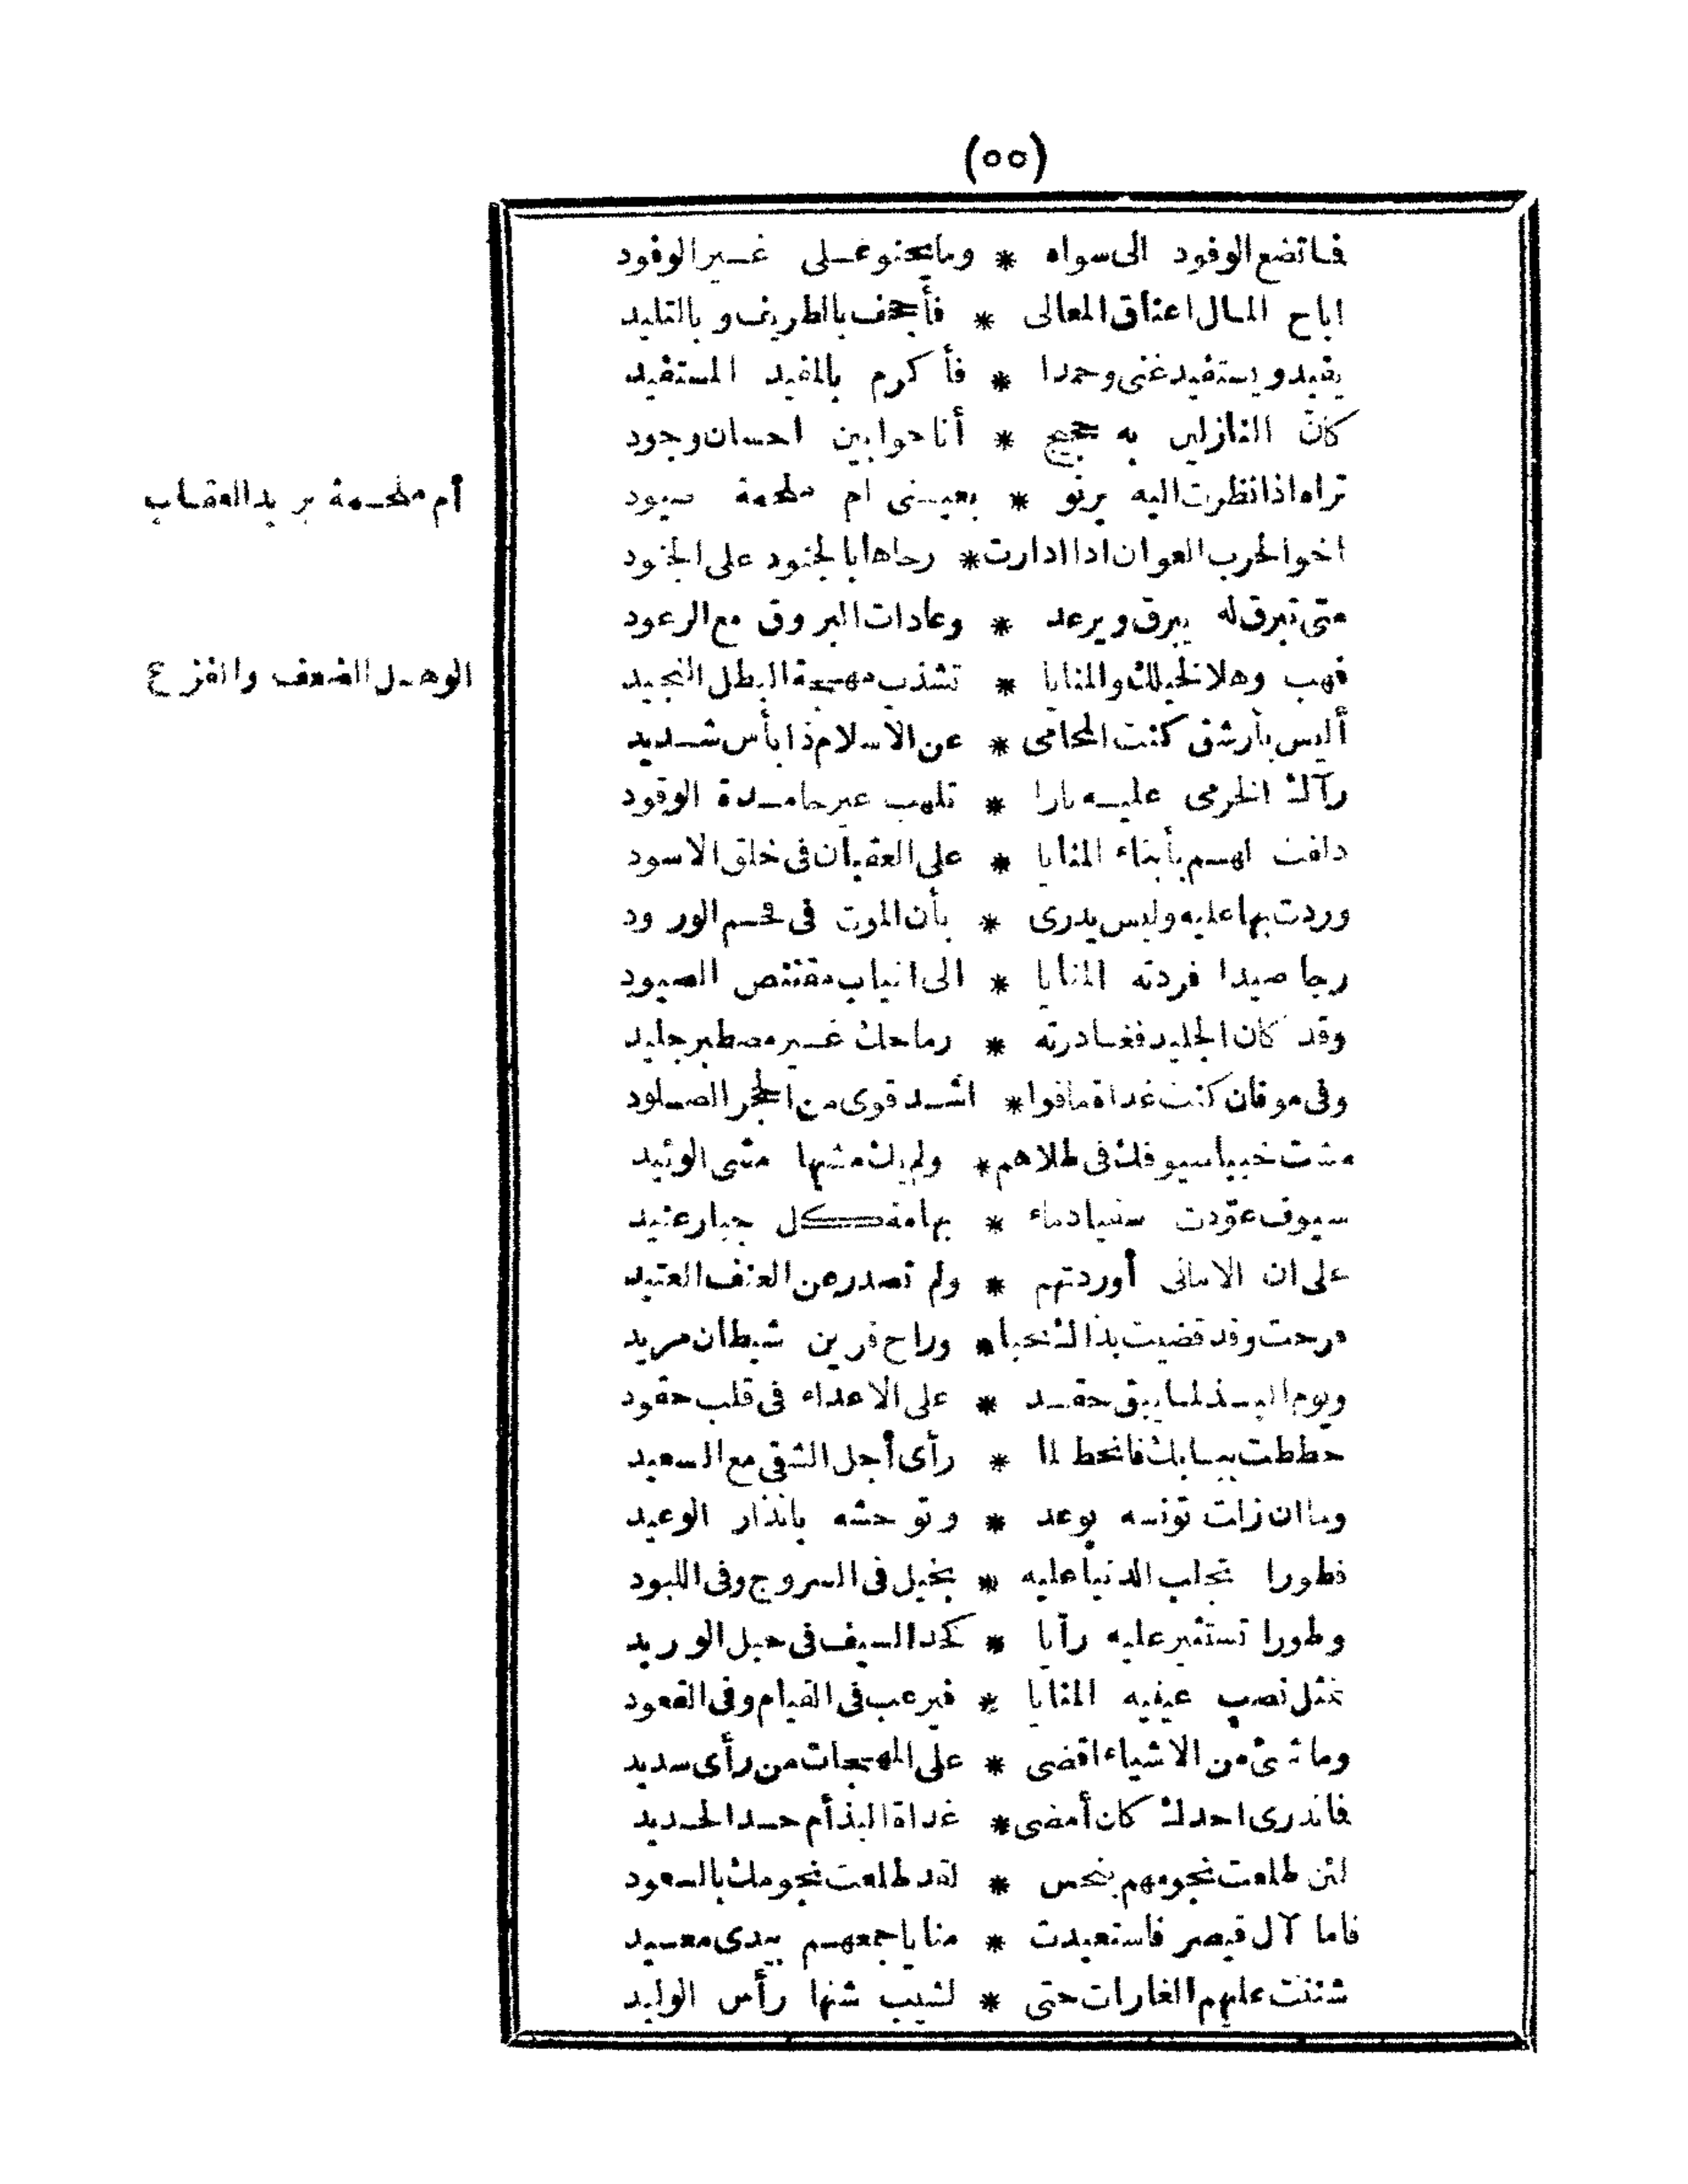 (٥٥)
فما تضع الوفود الى سواه * وما يحنو على غير الوفود
اباح المال اعناق المعالى * فأجحف بالطريف و بالتليد
يفيد و يستفيد غنى وحمدا * فأكرم بالمفيد المستفيد
كانّ النازلين به حجيج * أناخوا بين احسان وجود
تراه اذا نظرت اليه يرنو * بعينى ام ملحمة صيود
أم ملحمة يريد العقاب
اخو الحرب العوان اذا ادارت * رحاها بالجنود على الجنود
متى تبرق له يبرق و يرعد * وعادات البروق مع الرعود
فهب وهلا لخيلك والمنايا * تشذب مهجة البطل النجيد
الوهل الضعف والفزع
أليس بأرشق كنت المحامى * عن الاسلام ذا بأس شديد
رآك الخرمى عليه نارا * تلهب غير خامدة الوقود
دلفت لهم بأبناء المنايا * على العقبان فى خلق الاسود
وردت بها عليه وليس يدرى * بأن الموت فى قحم الورود
رجا صيدا فردته المنايا * الى انياب مقتنص الصيود
وقد كان الجليد فغادرته * رماحك غير مصطبر جليد
وفى موقان كنت غداة ماقوا * اشد قوى من الحجر الصلود
مشت خببا سيوفك فى طلاهم * ولم يك مشيها مشى الوئيد
سيوف عوّدت سقيا دماء * بهامة كل جبار عنيد
على ان الامانى أوردتهم * ولم تصدر عن العنف العتيد
فرحت وقد قضيت بذاك نحبا * وراح قرين شيطان مريد
ويوم البذ لما يبق حقد * على الاعداء فى قلب حقود
حططت ببابك فانحط لما * رأى أجل الشقى مع السعيد
وما ان زلت تونسه بوعد * وتوحشه بانذار الوعيد
فطورا تجلب الدنيا عليه * بخيل فى السروج وفى اللبود
وطورا تستثير عليه رأيا * كحد السيف فى حبل الوريد
تمثل نصب عينيه المنايا * فيرعب فى القيام وفى القعود
وما شئ من الاشياء اقضى * على المهجات من رأى سديد
فما ندرى احدك كان أمضى * غداة البذ أم حد الحديد
لئن طلعت نجومهم بنحس * لقد طلعت نجومك بالسعود
فاما آل قيصر فاستعيدت * منايا جمعهم بيدى معيد
شننت عليهم الغارات حتى * لشيب شنها رأس الوليد